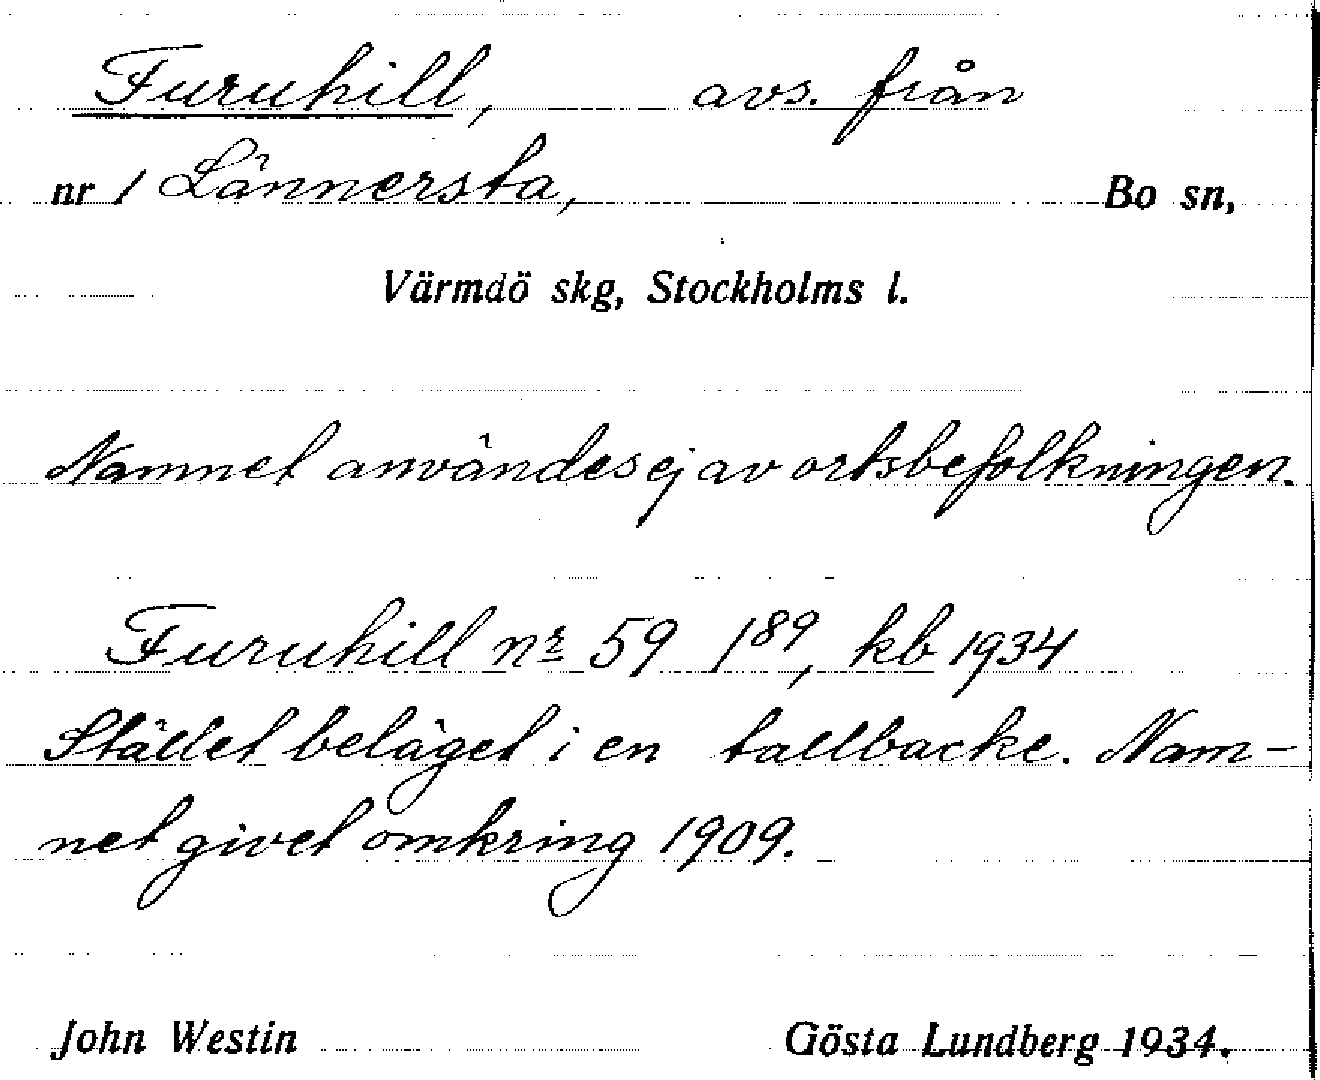 Furuhill, avs. från
nr 1 Lännersta, Bo sn,
Värmdö skg, Stockholms l.
Namnet användes ej av ortsbefolkningen.
Furuhill nr 59 1⁸⁹, kb 1934
Stället beläget i en tallbacke. Nam-
net givet omkring 1909.
John Westin Gösta Lundberg 1934.